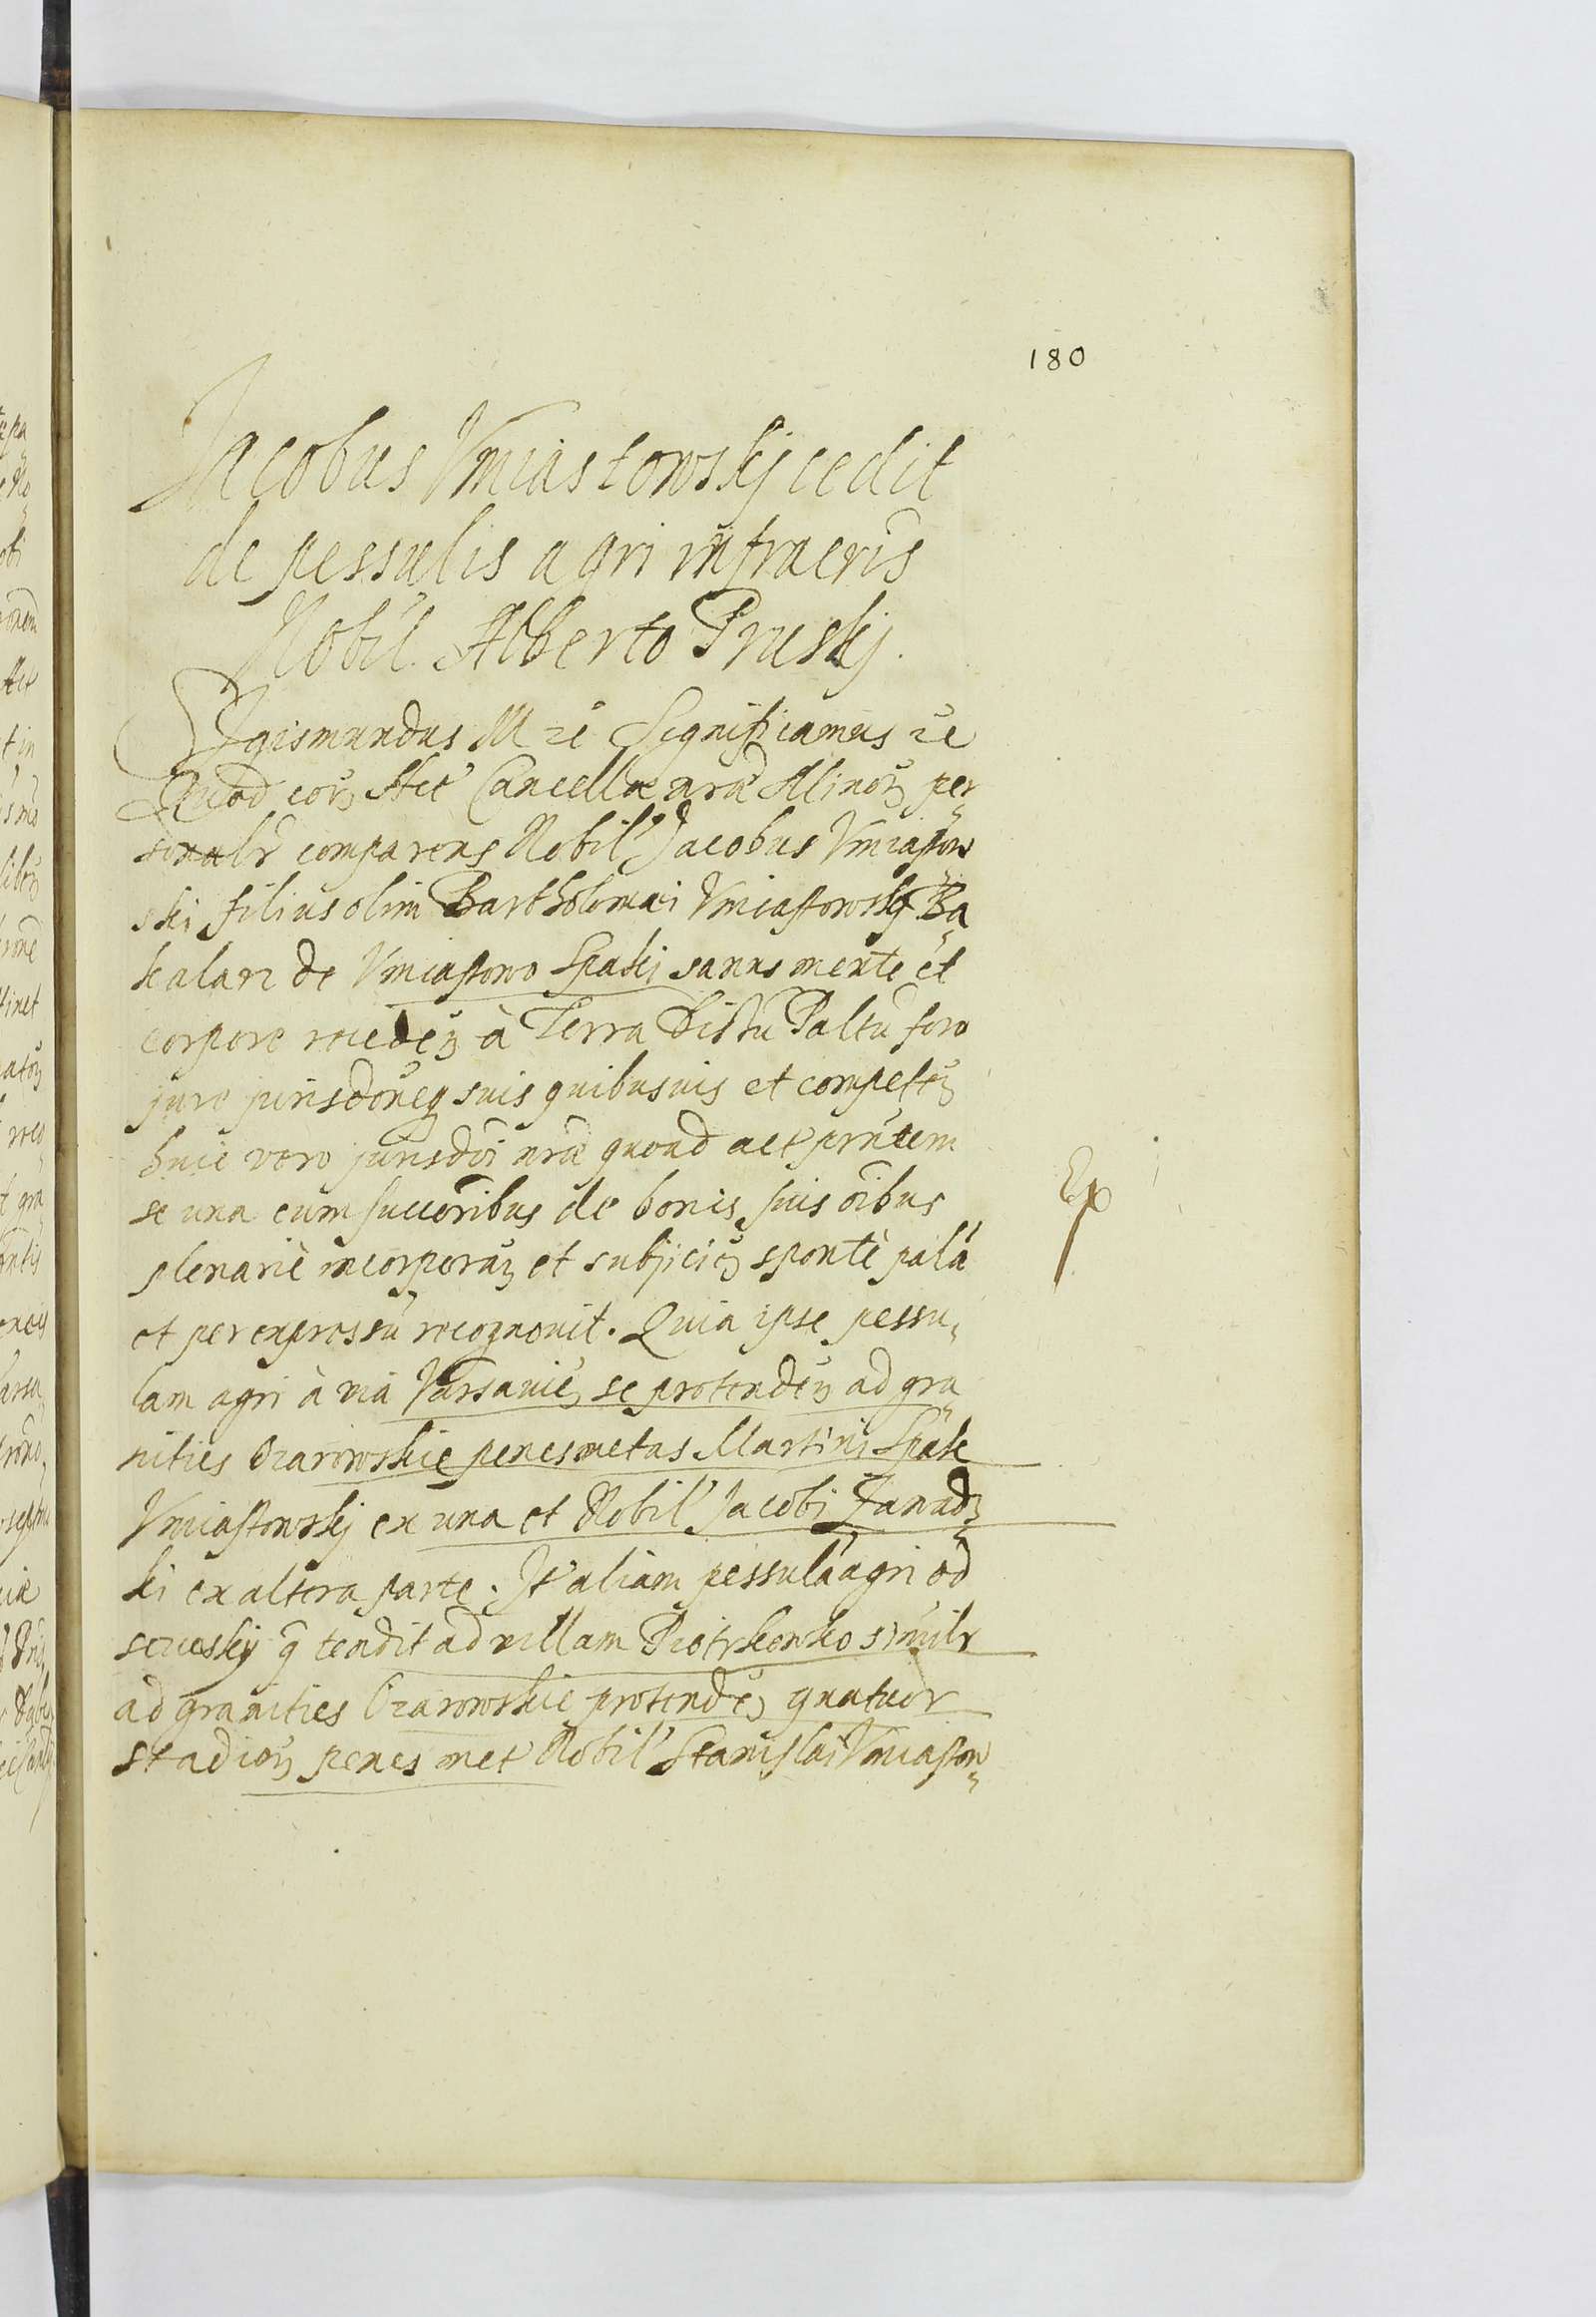 180
Jacobus Vmiastowskj cedit
de pessulis agri infracris
Nobil. Alberto Pruskj.
Sigismundus M zc Significamus zc
Quod corȝ Act Cancellæ nræ Minorȝ per„
sonalr comparens Nobil Jacobus Vmiastow
ski filius olim Bartholomæi Vmiastowskj Ba„
kalarz de Vmiastowo Spaki sanus mente et
corpore recedeȝ à Terra Distu Paltu foro
jure jurisdoneqȝ suis quibusuis et competeȝ
huic vero jurisdoi nræ quoad act pntem
se una cum succoribus de bonis suis oibus
plenariè incorporaȝ et subjicieȝ spontè palá
et per expressu recognouit. Quia ipse pessu„
lam agri à via Varsauieȝ se protendeȝ ad gra„
nities Ozarowskie penes metas Martini Spak
Vmiastowskj ex una et Nobil Jacobi Zawadȝ„
ki ex altera parte. It aliam pessulá agri od
q tendit ad villam Piotrkowko similr
ad granities Ozarowskie protendeȝ quatuor
stadiorȝ penes met Nobil Stanislai Vmiastow„
Ex